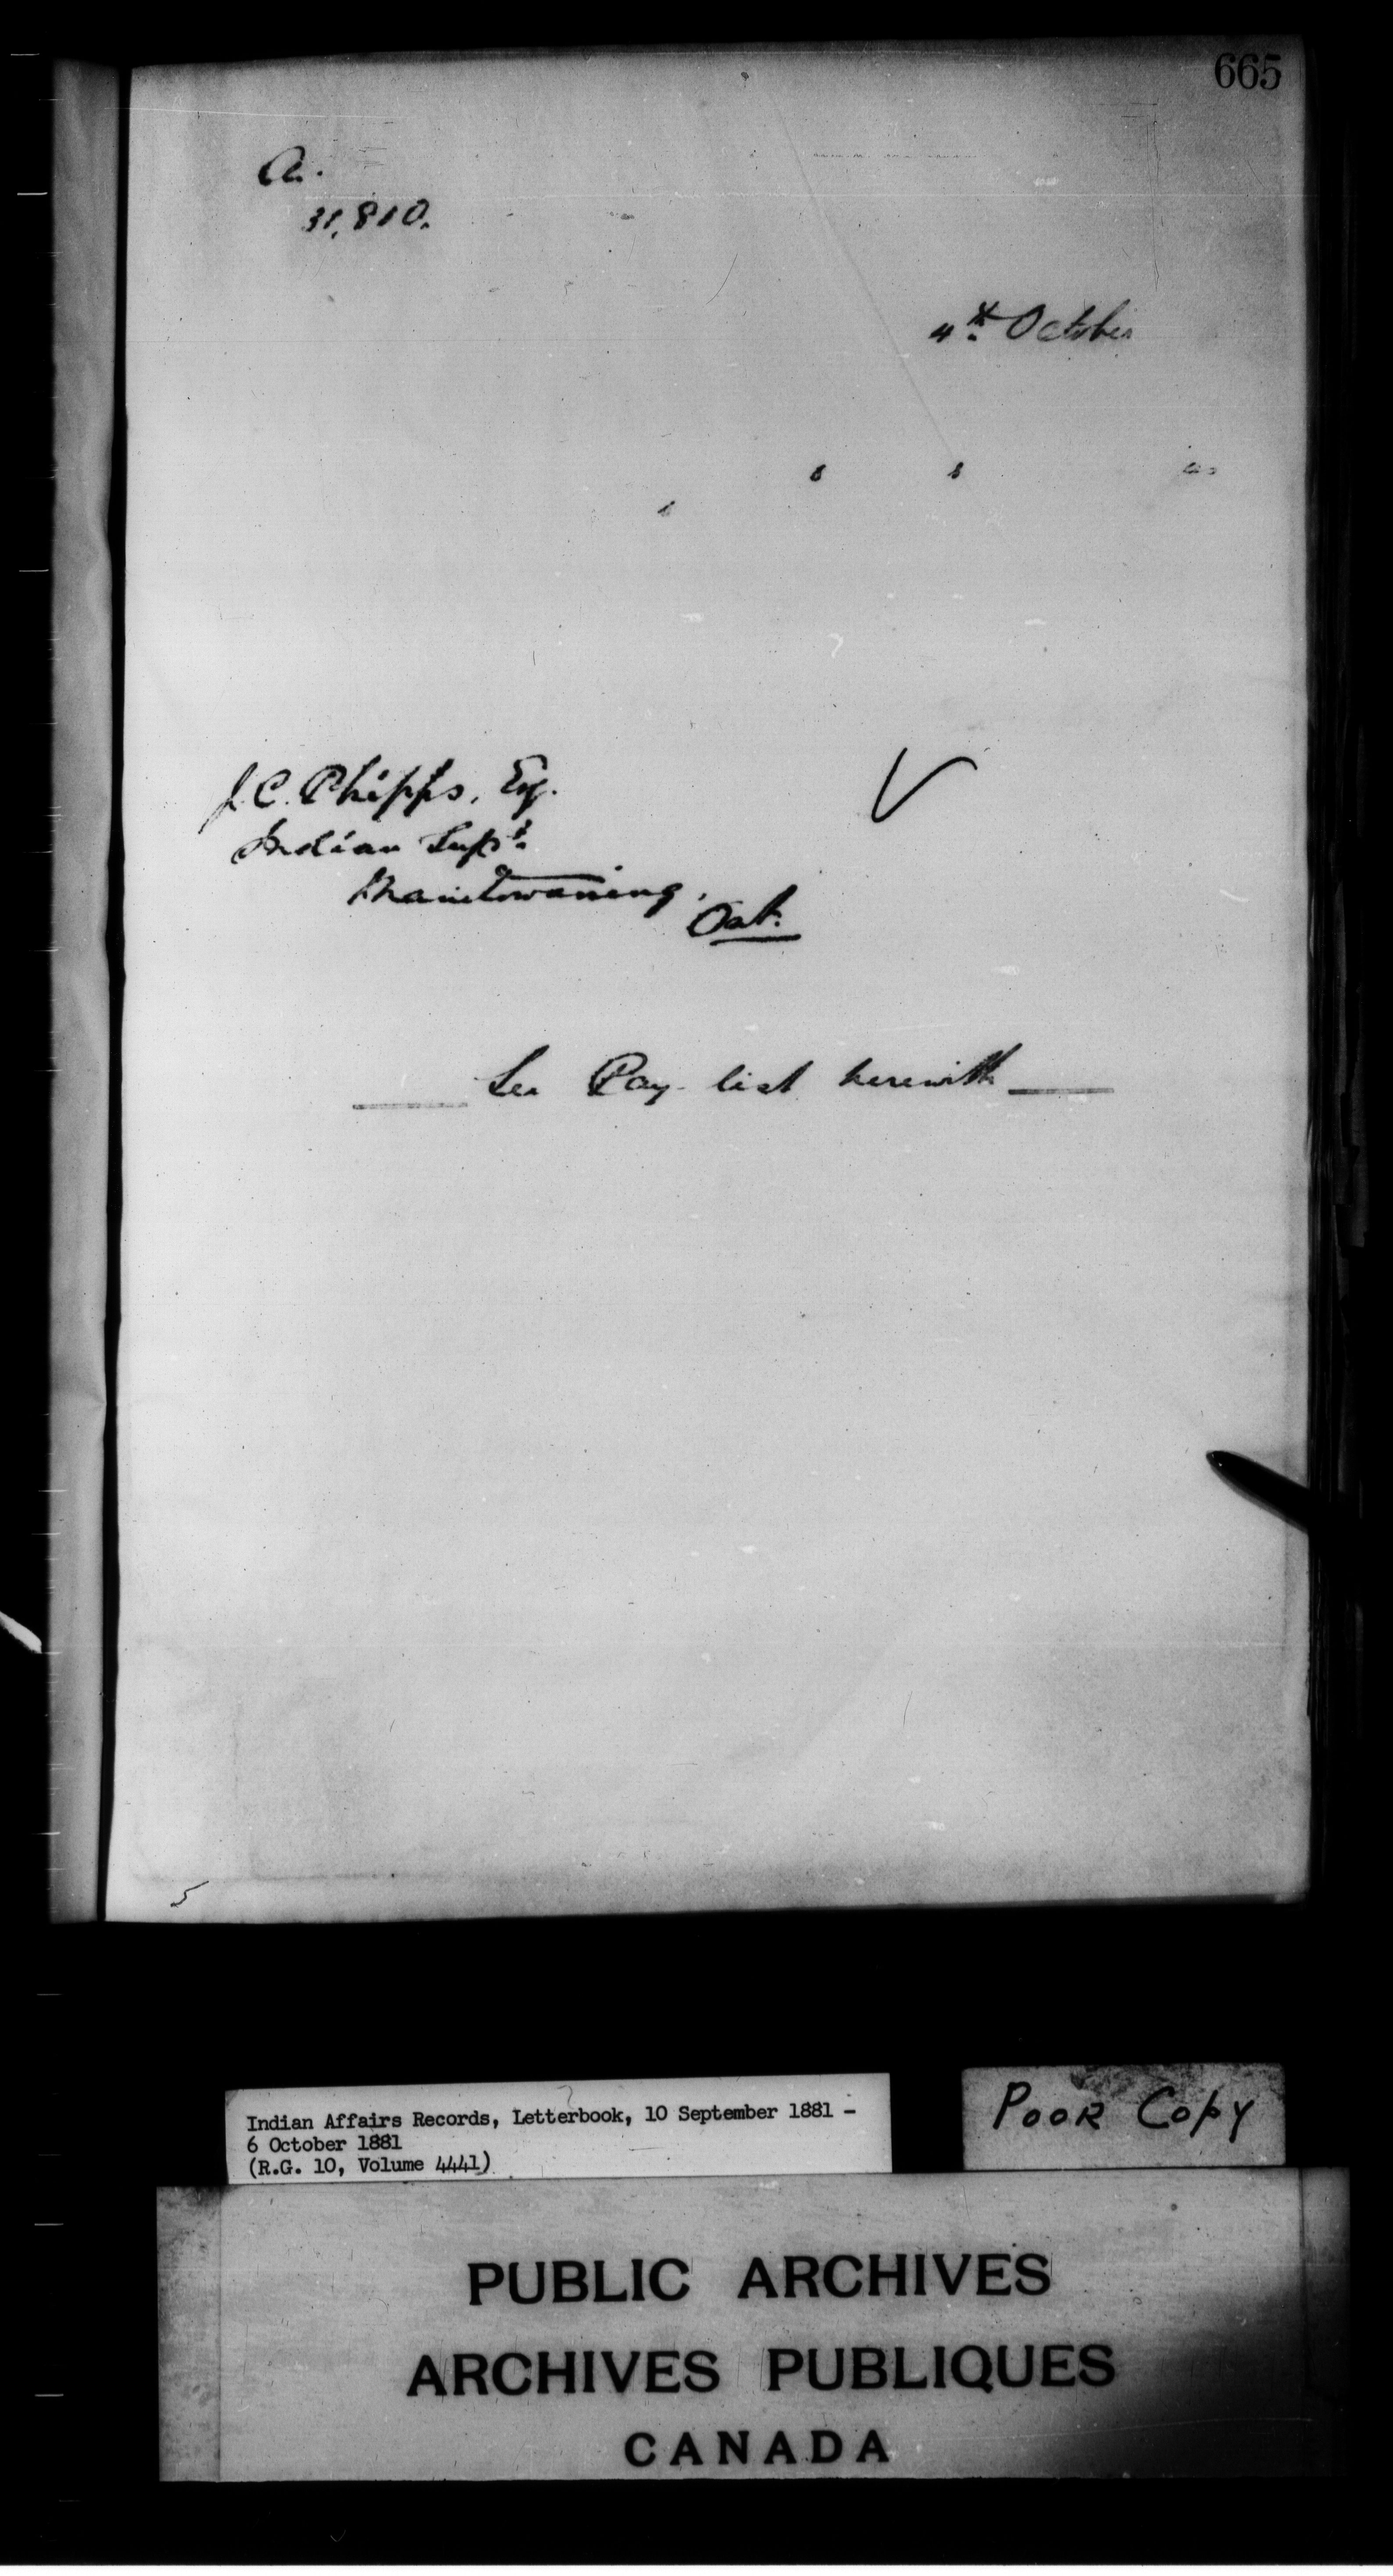 665
A.
31,810.
4th October
J. C. Phipps, Esq.
Indian Supt.
Manitowaning,
Ont.
See Pay list herewith
5
Indian Affairs Records, Letterbook, 10 September 1881 -
6 October 1881
(R.G. 10, Volume 4441)
POOR COPY
PUBLIC ARCHIVES
ARCHIVES PUBLIQUES
CANADA